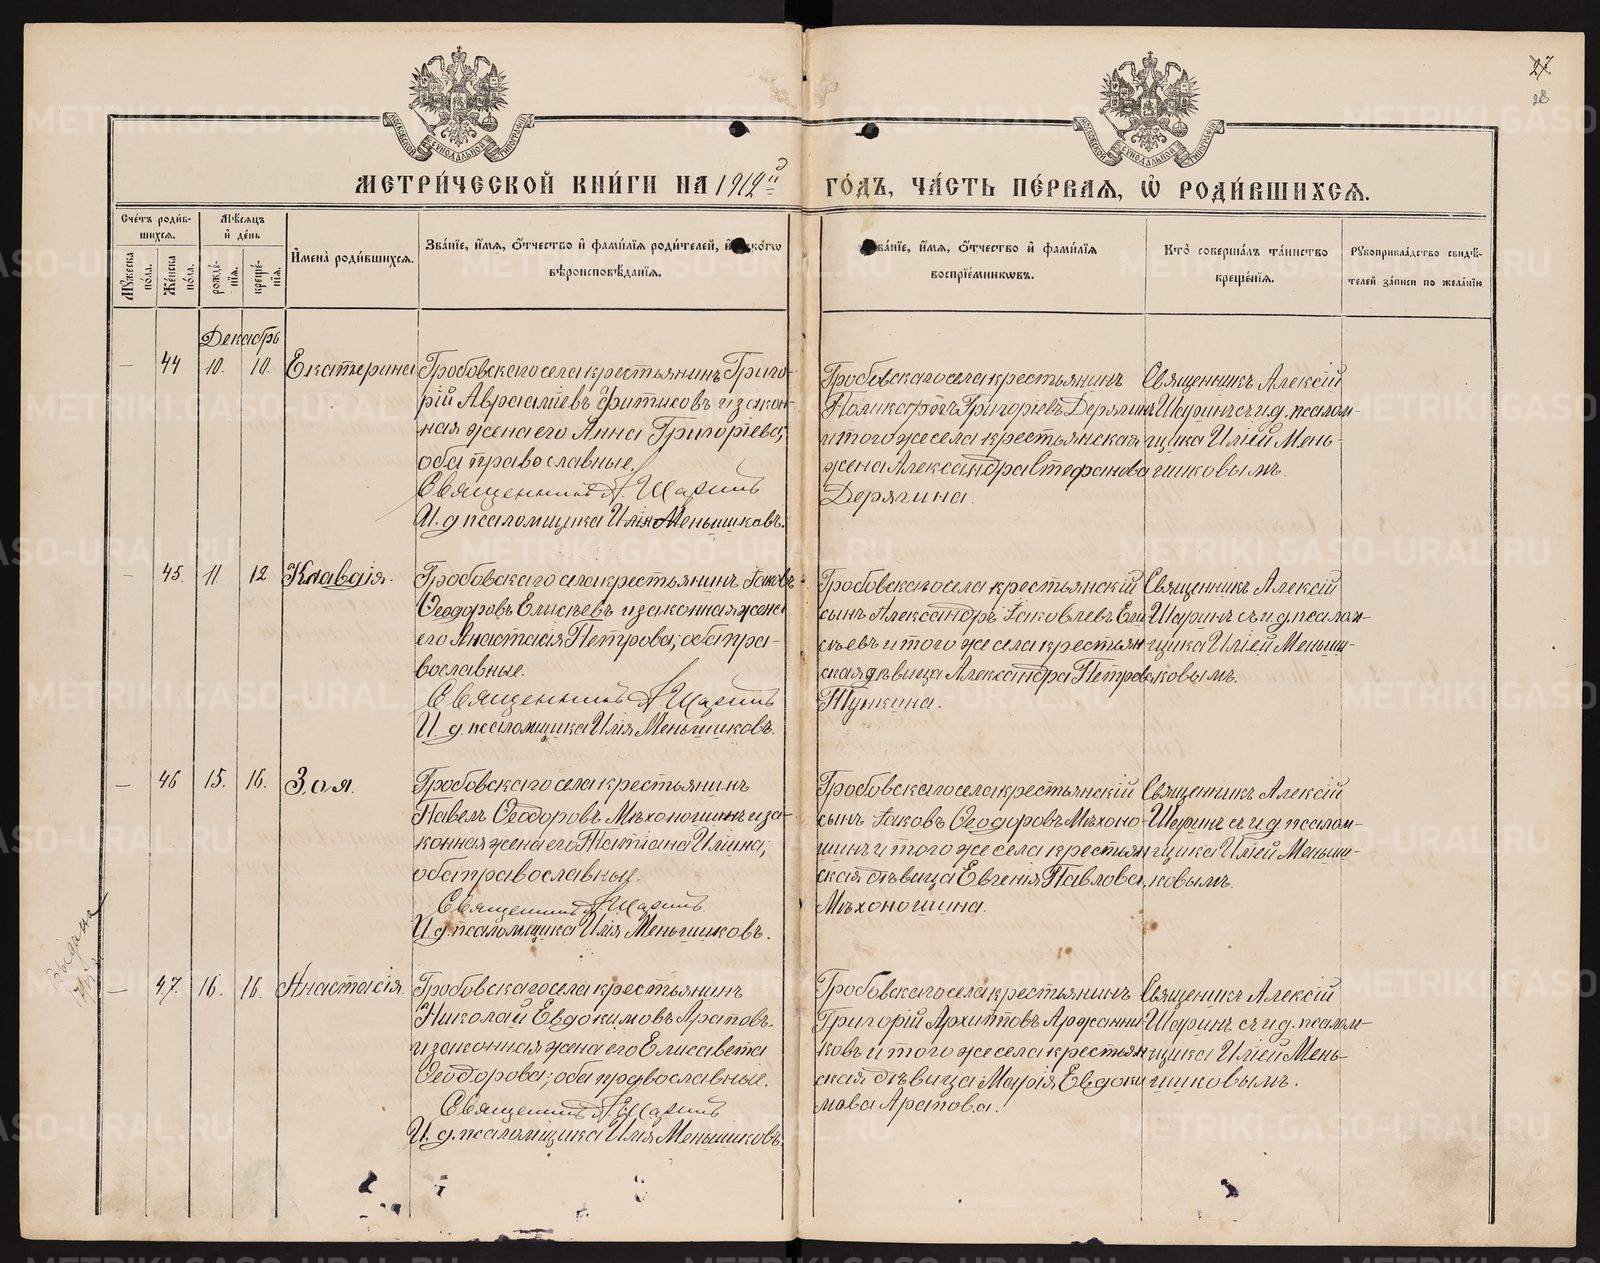 27
28
МОСКОВСКОЙ СѴНОДАЛЬНОЙ ТИПОГРАФІИ
МОСКОВСКОЙ СѴНОДАЛЬНОЙ ТИПОГРАФІИ
МЕТРИ́ЧЕСКОЙ КНИ́ГИ НА 1912й
ГО́ДЪ, ЧА́СТЬ ПЕ́РВАЯ, Ѽ РОДИ́ВШИХСЯ.
Сче́тъ роди́в-
шихся.
Мꙋ́жеска по́ла.
Же́нска по́ла.
Мѣ́сяцъ
и҆ де́нь
рожде́-
нїя.
креще́-
нїя.
И҆мена̀ роди́вшихся.
Зва́нїе, и҆́мя, ѻ҆́тчество и҆ фами́лїя роди́телей, и҆ како́гѡ
вѣроисповѣ́данїя.
Зва́нїе, и҆́мя, ѻ҆́тчество и҆ фами́лїя
воспрїе́мникѡвъ.
Кто̀ соверша́лъ та́инство
креще́нїя.
Рꙋкоприкла́дство свидѣ́-
телей за́писи по жела́нїю
Декабрь
— 44 10. 10. Екатерина
Гробовскаго села крестьянинъ Григо-
рій Авраамiевъ Фитисовъ и закон-
ная жена его Анна Григорiева;
оба православные.
Священникъ А. Шаринъ
И. д. псаломщика Илія Меньшиковъ.
Гробовскаго села крестьянинъ
Поликарпъ Григоріевъ Дерягинъ
и того же села крестьянская
жена Александра Стефанова
Дерягина.
Священникъ Алексій
Шаринъ съ и. д. псалом-
щика Иліей Мень-
шиковымъ.
— 45. 11 12 Клавдія.
Гробовскаго села крестьянинъ Іаковъ
Ѳеодоровъ Елисѣевъ и законная жена
его Анастасія Петрова; оба пра-
вославные.
Священникъ А. Шаринъ
И. д. псаломщика Илія Меньшиковъ.
Гробовскаго села крестьянскій
сынъ Александръ Іаковлевъ Ели-
сѣевъ и того же села крестьян-
ская дѣвица Александра Петрова
Пушкина.
Священникъ Алексій
Шаринъ съ и. д. псалом-
щика Иліей Меньши-
ковымъ.
— 46 15. 16. Зоя.
Гробовскаго села крестьянинъ
Павелъ Ѳеодоровъ Мѣхоношинъ и за-
конная жена его Татіана Иліина;
оба православные.
Священникъ А. Шаринъ
И. д. псаломщика Илія Меньшиковъ.
Гробовскаго села крестьянскій
сынъ Іаковъ Ѳеодоровъ Мѣхоно-
шинъ и того же села крестьян-
ская дѣвица Евгенія Павлова
Мѣхоношина.
Священникъ Алексій
Шаринъ съ и. д. псалом-
щика Иліей Меньши-
ковымъ.
выдана
— 47. 16. 16. Анастасія.
Гробовскаго села крестьянинъ
Николай Евдокимовъ Араповъ
и законная жена его Елисавета
Ѳеодорова; оба православные.
Священникъ А. Шаринъ
И. д. псаломщика Илія Меньшиковъ.
Гробовскаго села крестьянинъ
Григорій Архиповъ Аржанни-
ковъ и того же села крестьян-
ская дѣвица Марія Евдоки-
мова Арапова.
Священикъ Алексій
Шаринъ съ и. д. псалом-
щика Иліей Мень-
шиковымъ.
METRIKI.GASO-URAL.RU